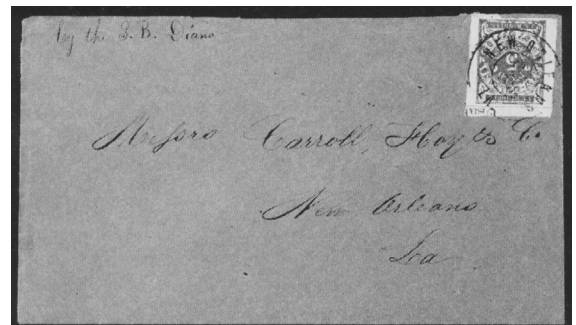 by th. S. B. Diana
NEW ORLEANS
5
Messrs Carroll, Hoy & Co.
New Orleans
La